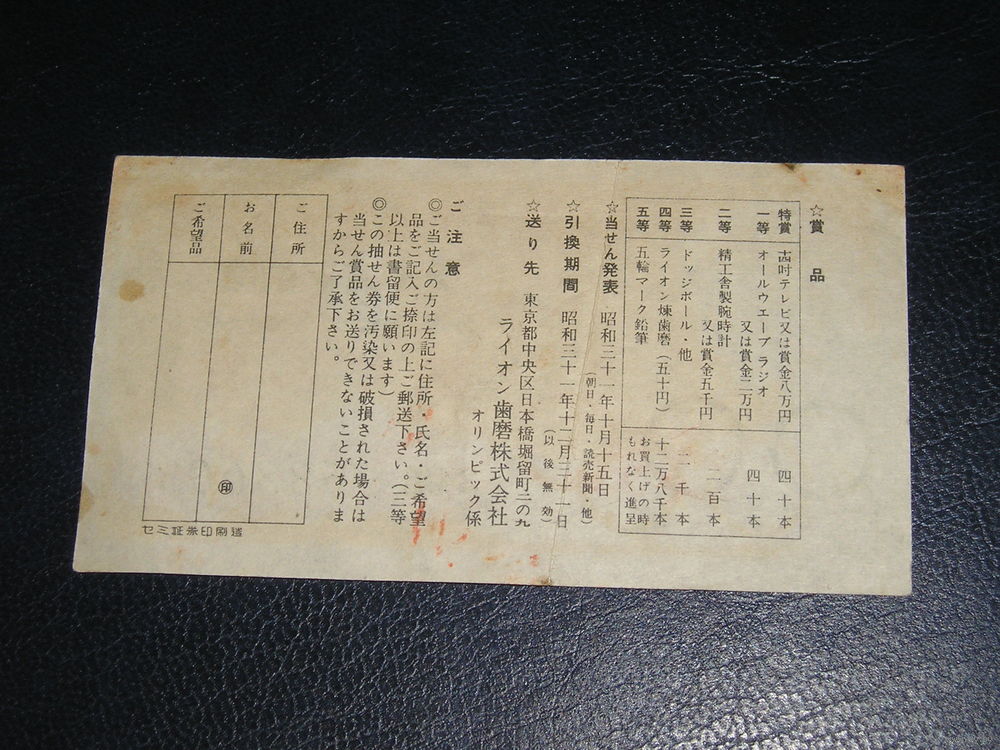 ☆賞品
特賞 十四吋テレビ又は賞金八万円 四十本
一等 オールウエーブラジオ
又は賞金二万円 四十本
二等 精工舎製腕時計
又は賞金五千円 二百本
三等 ドッジボール・他 二千本
四等 ライオン煉歯磨(五十円) 十二万八千本
五等 五輪マーク鉛筆 お買上げの時
もれなく進呈
☆当せん発表 昭和三十一年十月十五日
(朝日・毎日・読売新聞・他)
☆引換期間 昭和三十一年十二月三十一日
(以後無効)
☆送り先 東京都中央区日本橋堀留町二の九
ライオン歯磨株式会社
オリンピック係
ご注意
◎ご当せんの方は左記に住所・氏名・ご希望
品をご記入ご捺印の上ご郵送下さい。(三等
以上は書留便に願います)
◎この抽せん券を汚染又は破損された場合は
当せん賞品をお送りできないことがありま
すからご了承下さい。
ご住所
お名前
印
ご希望品
セミ証券印刷(造)